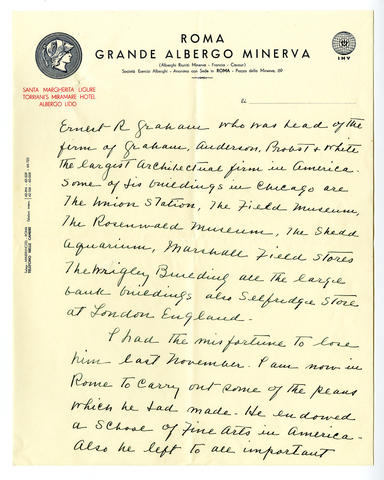 ROMA
GRANDE ALBERGO MINERVA
(Alberghi Riuniti Minerva - Francia - Cavour)
Società Esercizi Alberghi - Anonima con Sede in ROMA - Piazza della Minerva, 69
IHV
SANTA MARGHERITA LIGURE
TORRIANI'S MIRAMARE HOTEL
ALBERGO LIDO
li
Ernest R Graham who was head of the
firm of Graham, Anderson, Probst & White
the largest Architectual firm in America.
Some of his buildings in Chicago are
The Union Station, The Field Museum,
The Rosenwald Museum, The Shedd
Aquarium, Marshall Field Stores
The Wrigley Building all the large
bank buildings also Selfridge Store
at London England.
I had the misfortune to lose
him last November. I am now in
Rome to carry out some of the plans
which he had made. He endowed
a School of Fine Arts in America.
Also he left to all important